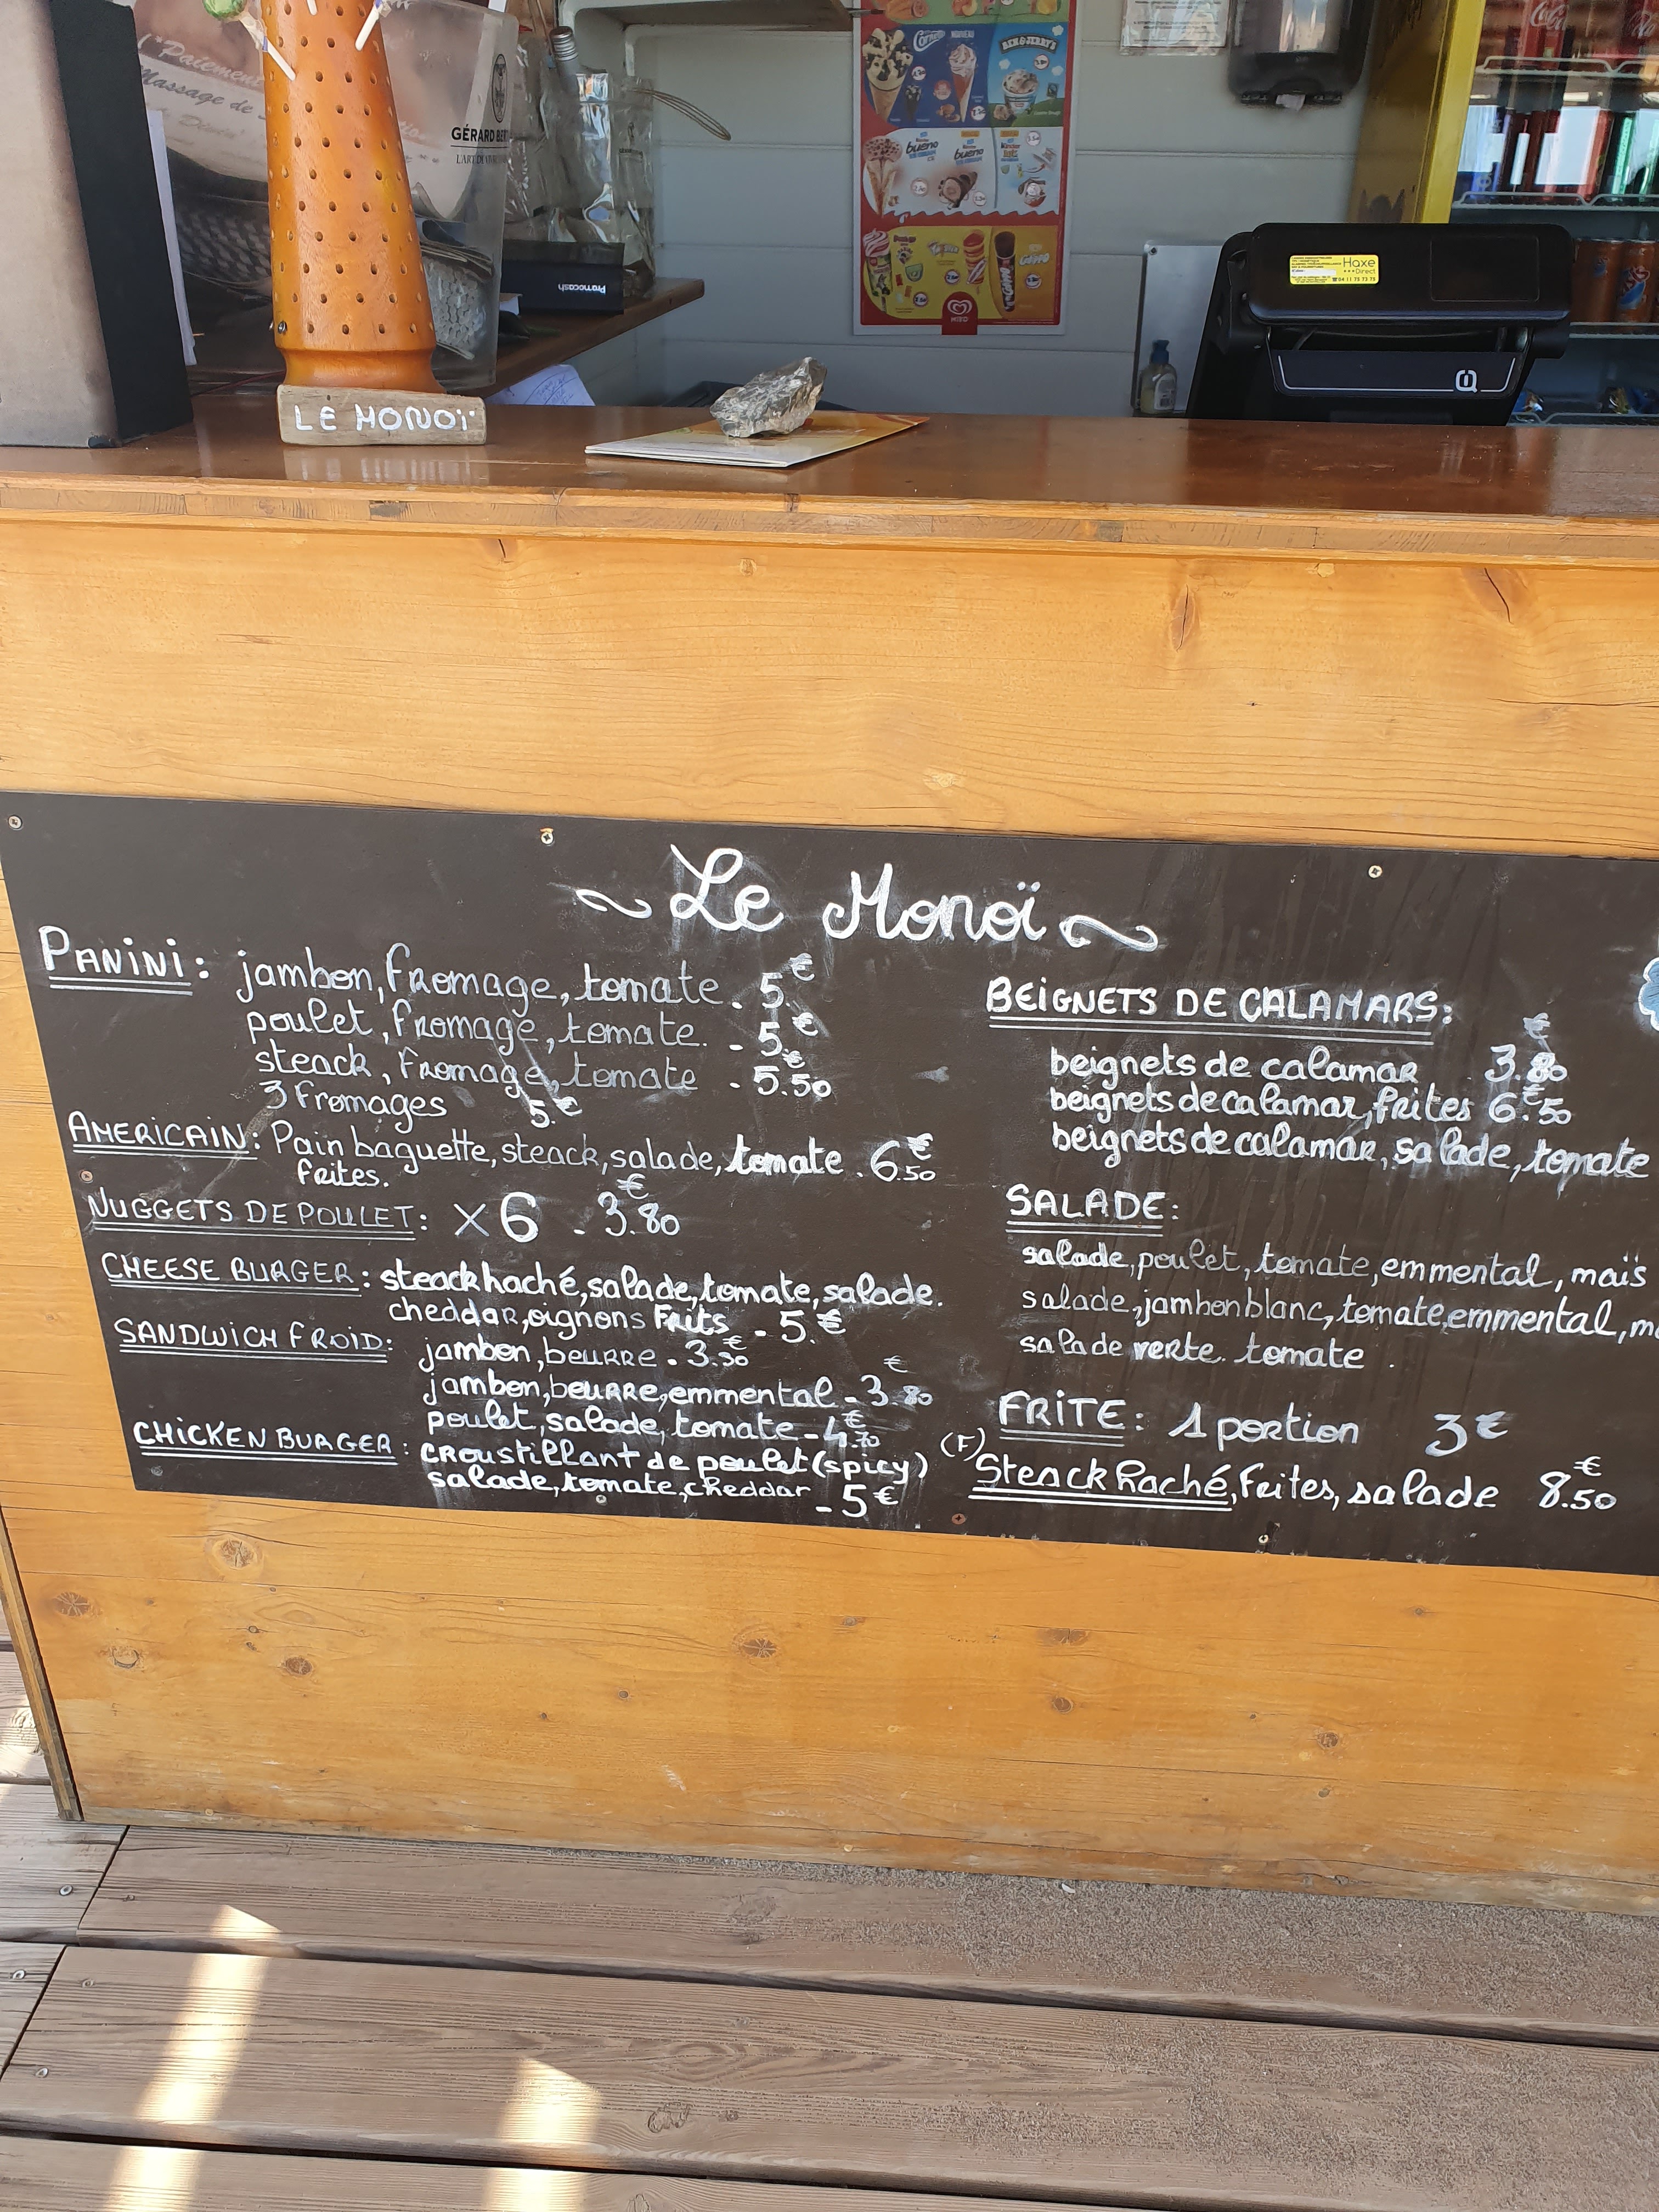 L'Paiement
Massage de
GÉRARD BERT
Cornetto
NOUVEAU
BEN & JERRY'S
bueno
bueno
Kinder
Promocash
MIKO
Haxe
Direct
04 11 75 73 73
LE MONOÏ
~ Le Monoï ~
PANINI: jambon, fromage, tomate. 5€
poulet, fromage, tomate. - 5€
steack, fromage, tomate - 5€.50
3 fromages 5.€
AMERICAIN: Pain baguette, steack, salade, tomate. 6€.50
frites.
NUGGETS DE POULET: x6 - 3€.80
CHEESE BURGER: steack haché, salade, tomate, salade.
cheddar, oignons frits - 5.€
SANDWICH FROID: jambon, beurre. 3€.30
jambon, beurre, emmental - 3€.80
poulet, salade, tomate - 4€.70
CHICKEN BURGER: croustillant de poulet (spicy)
salade, tomate, cheddar
- 5€
BEIGNETS DE CALAMARS:
beignets de calamar 3€.80
beignets de calamar, frites 6€.50
beignets de calamar, salade, tomate
SALADE:
salade, poulet, tomate, emmental, maïs
salade, jambon blanc, tomate, emmental, m
salade verte. tomate.
FRITE: 1 portion 3€
(F) Steack haché, frites, salade 8€.50